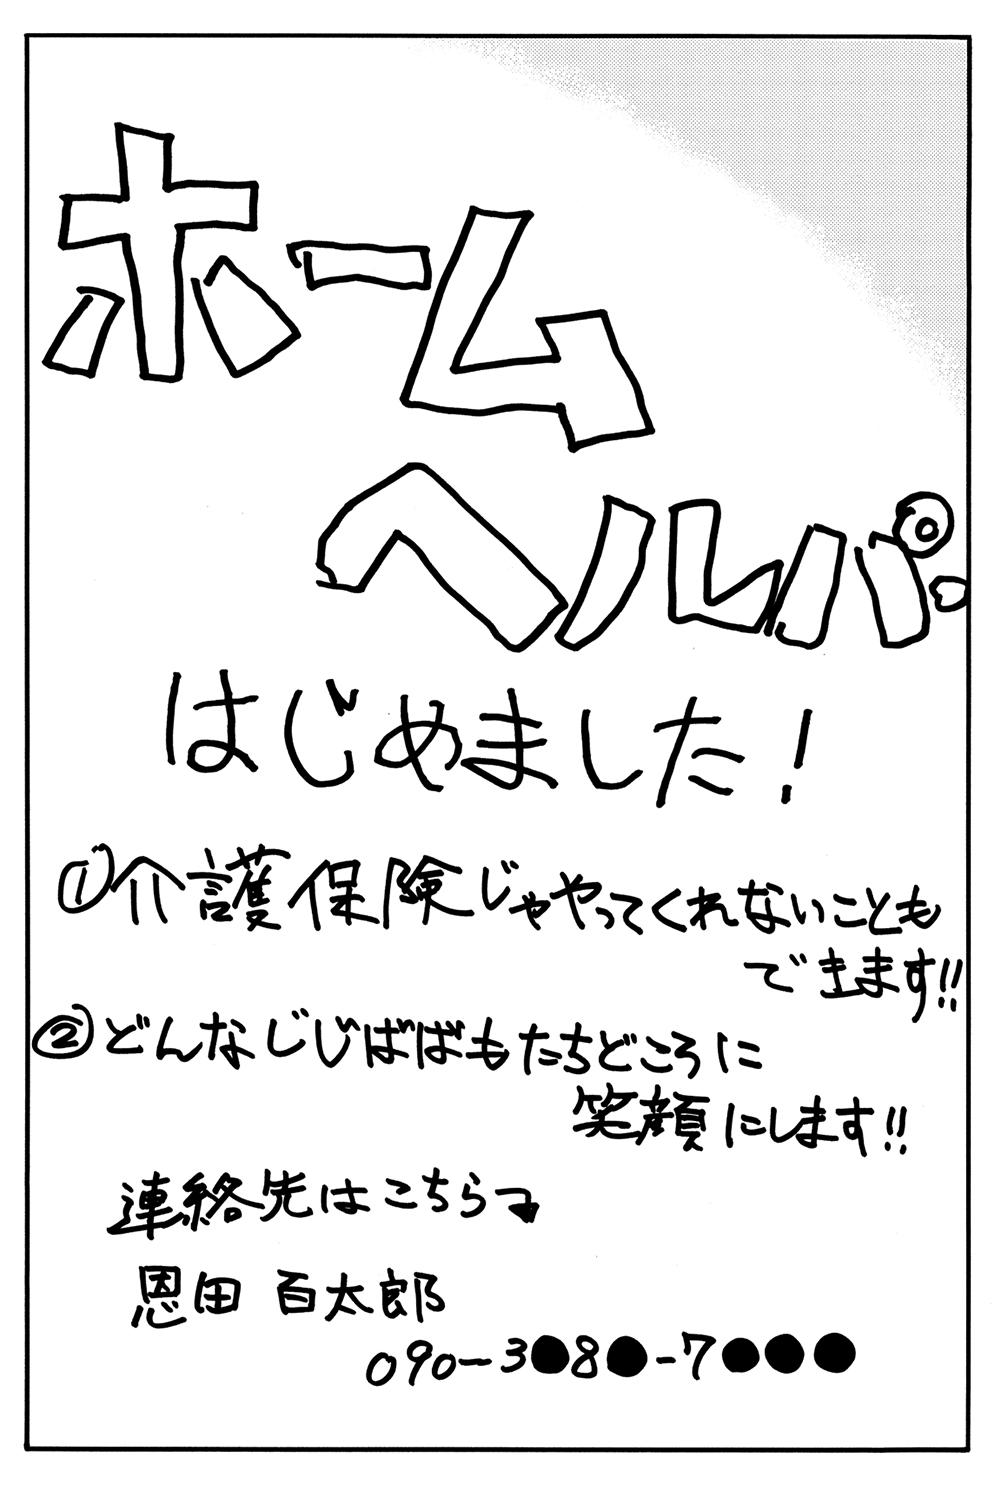 ホーム
ヘルパー
はじめました!
①介護保険じゃやってくれないことも
できます!!
②どんなじじばばもたちどころに
笑顔にします!!
連絡先はこちら↴
恩田 百太郎
090-3●8●-7●●●